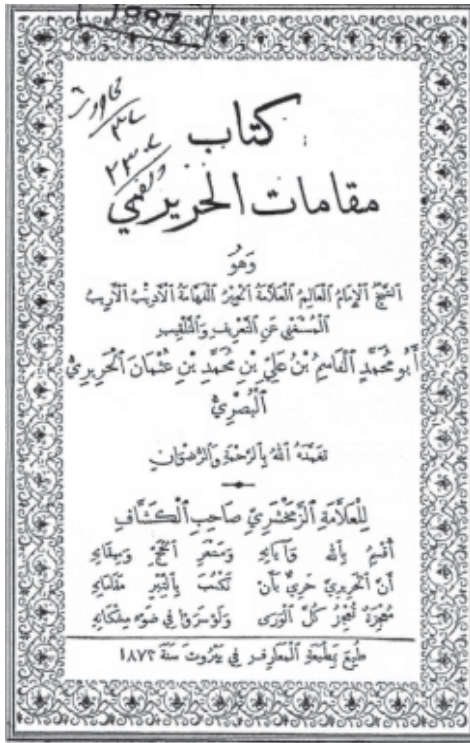 1887
كتاب
مقامات الحريري
وَهُوَ
الشَّيْخُ الْإِمَامُ الْعَالِمُ الْعَلَّامَةُ الْحَبْرُ الْفَهَّامَةُ الْأَدِيبُ الْأَرِيبُ
الْمُسْتَغْنِي عَنِ التَّعْرِيفِ وَالتَّلْقِيبِ
أَبُو مُحَمَّدٍ الْقَاسِمُ بْنُ عَلِيِّ بْنِ مُحَمَّدِ بْنِ عُثْمَانَ الْحَرِيرِيُّ
الْبَصْرِيُّ
تَغَمَّدَهُ اللهُ بِالرَّحْمَةِ وَالرِّضْوَانِ
لِلْعَلَّامَةِ الزَّمَخْشَرِيِّ صَاحِبِ الْكَشَّافِ
أُقْسِمُ بِاللهِ وَآيَاتِهِ وَمَشْعَرِ الْحَجِّ وَمِيقَاتِهِ
أَنَّ الْحَرِيرِيَّ حَرِيٌّ بِأَنْ تُكْتَبَ بِالتِّبْرِ مَقَامَاتُهُ
مُعْجِزَةٌ تُعْجِزُ كُلَّ الْوَرَى وَلَوْ سَرَوْا فِي ضَوْءِ مِشْكَاتِهِ
طُبِعَ بِمَطْبَعَةِ الْمَعَارِفِ فِي بَيْرُوتَ سَنَةَ ١٨٧٣